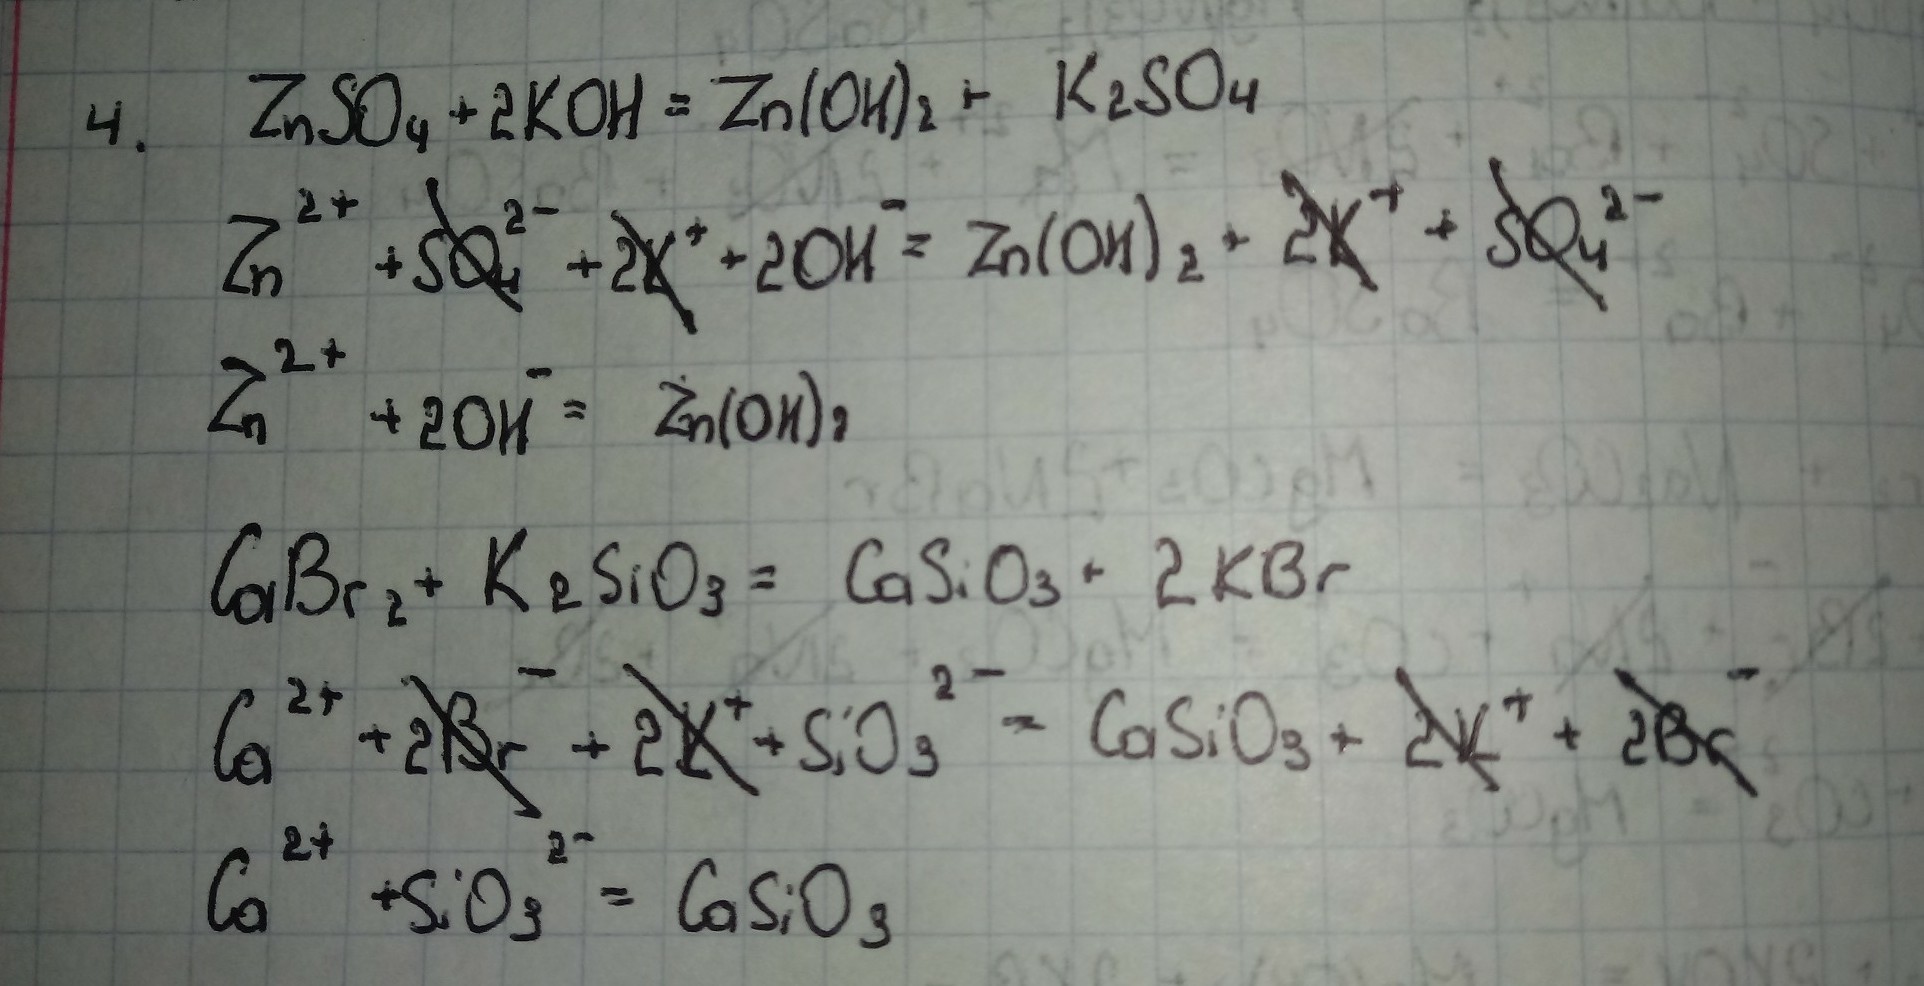 4. ZnSO₄ + 2KOH = Zn(OH)₂ + K₂SO₄
Zn²⁺ + SO₄²⁻ + 2K⁺ + 2OH⁻ = Zn(OH)₂ + 2K⁺ + SO₄²⁻
Zn²⁺ + 2OH⁻ = Zn(OH)₂
CaBr₂ + K₂SiO₃ = CaSiO₃ + 2KBr
Ca²⁺ + 2Br⁻ + 2K⁺ + SiO₃²⁻ = CaSiO₃ + 2K⁺ + 2Br⁻
Ca²⁺ + SiO₃²⁻ = CaSiO₃